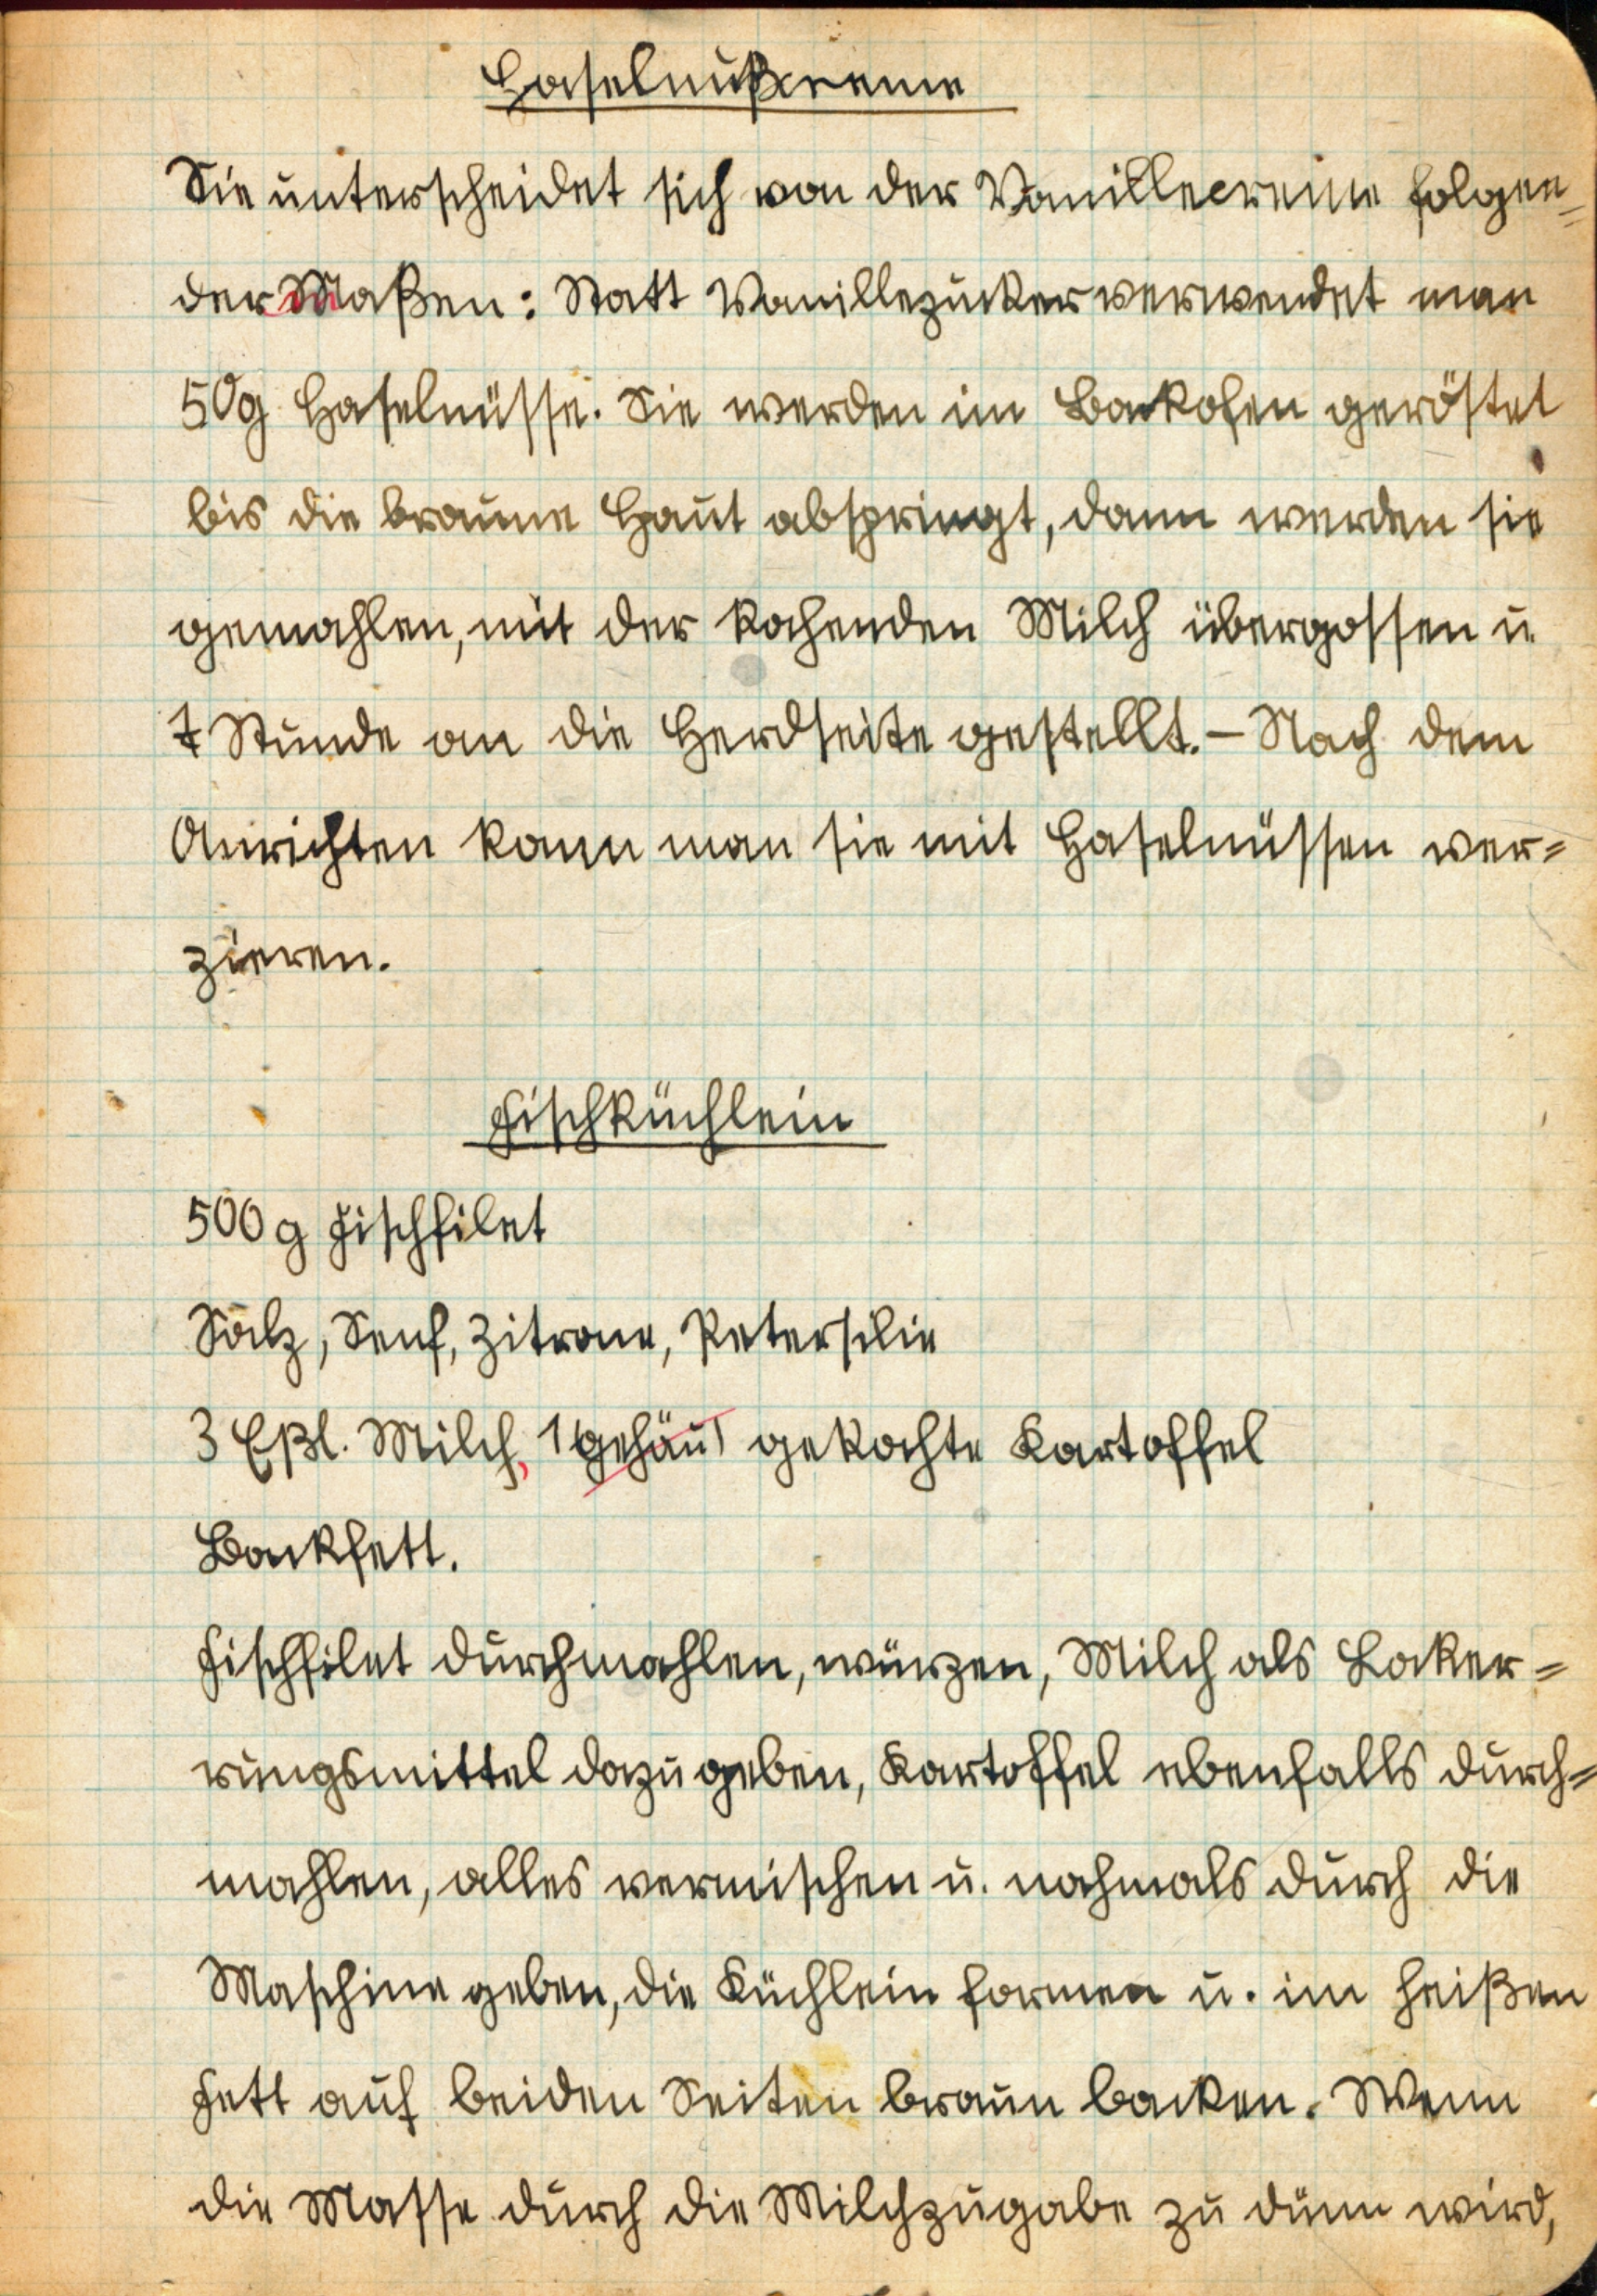 Haselnußcreme
Sie unterscheidet sich von der Vanillecreme folgen=
der Maßen: Statt Vanillezucker verwendet man
50g Haselnüsse. Sie werden im Backofen geröstet
bis die braune Haut abspringt, dann werden sie
gemahlen, mit der kochenden Milch übergossen u
1 Stunde an die Herdseite gestellt. – Nach dem
Anrichten kann man sie mit Haselnüssen ver=
zieren.
Fischküchlein
500 g Fischfilet
Salz, Senf, Zitrone, Petersilie
3 Eßl. Milch, 1 gehäuf gekochte Kartoffel
Backfett.
Fischfilet durchmahlen, würzen, Milch als Locker=
rungsmittel dazu geben, Kartoffel ebenfalls durch=
mahlen, alles vermischen u. nochmals durch die
Maschine geben, die Küchlein formen u. im heißen
Fett auf beiden Seiten braun backen. Wenn
die Masse durch die Milchzugabe zu dünn wird,